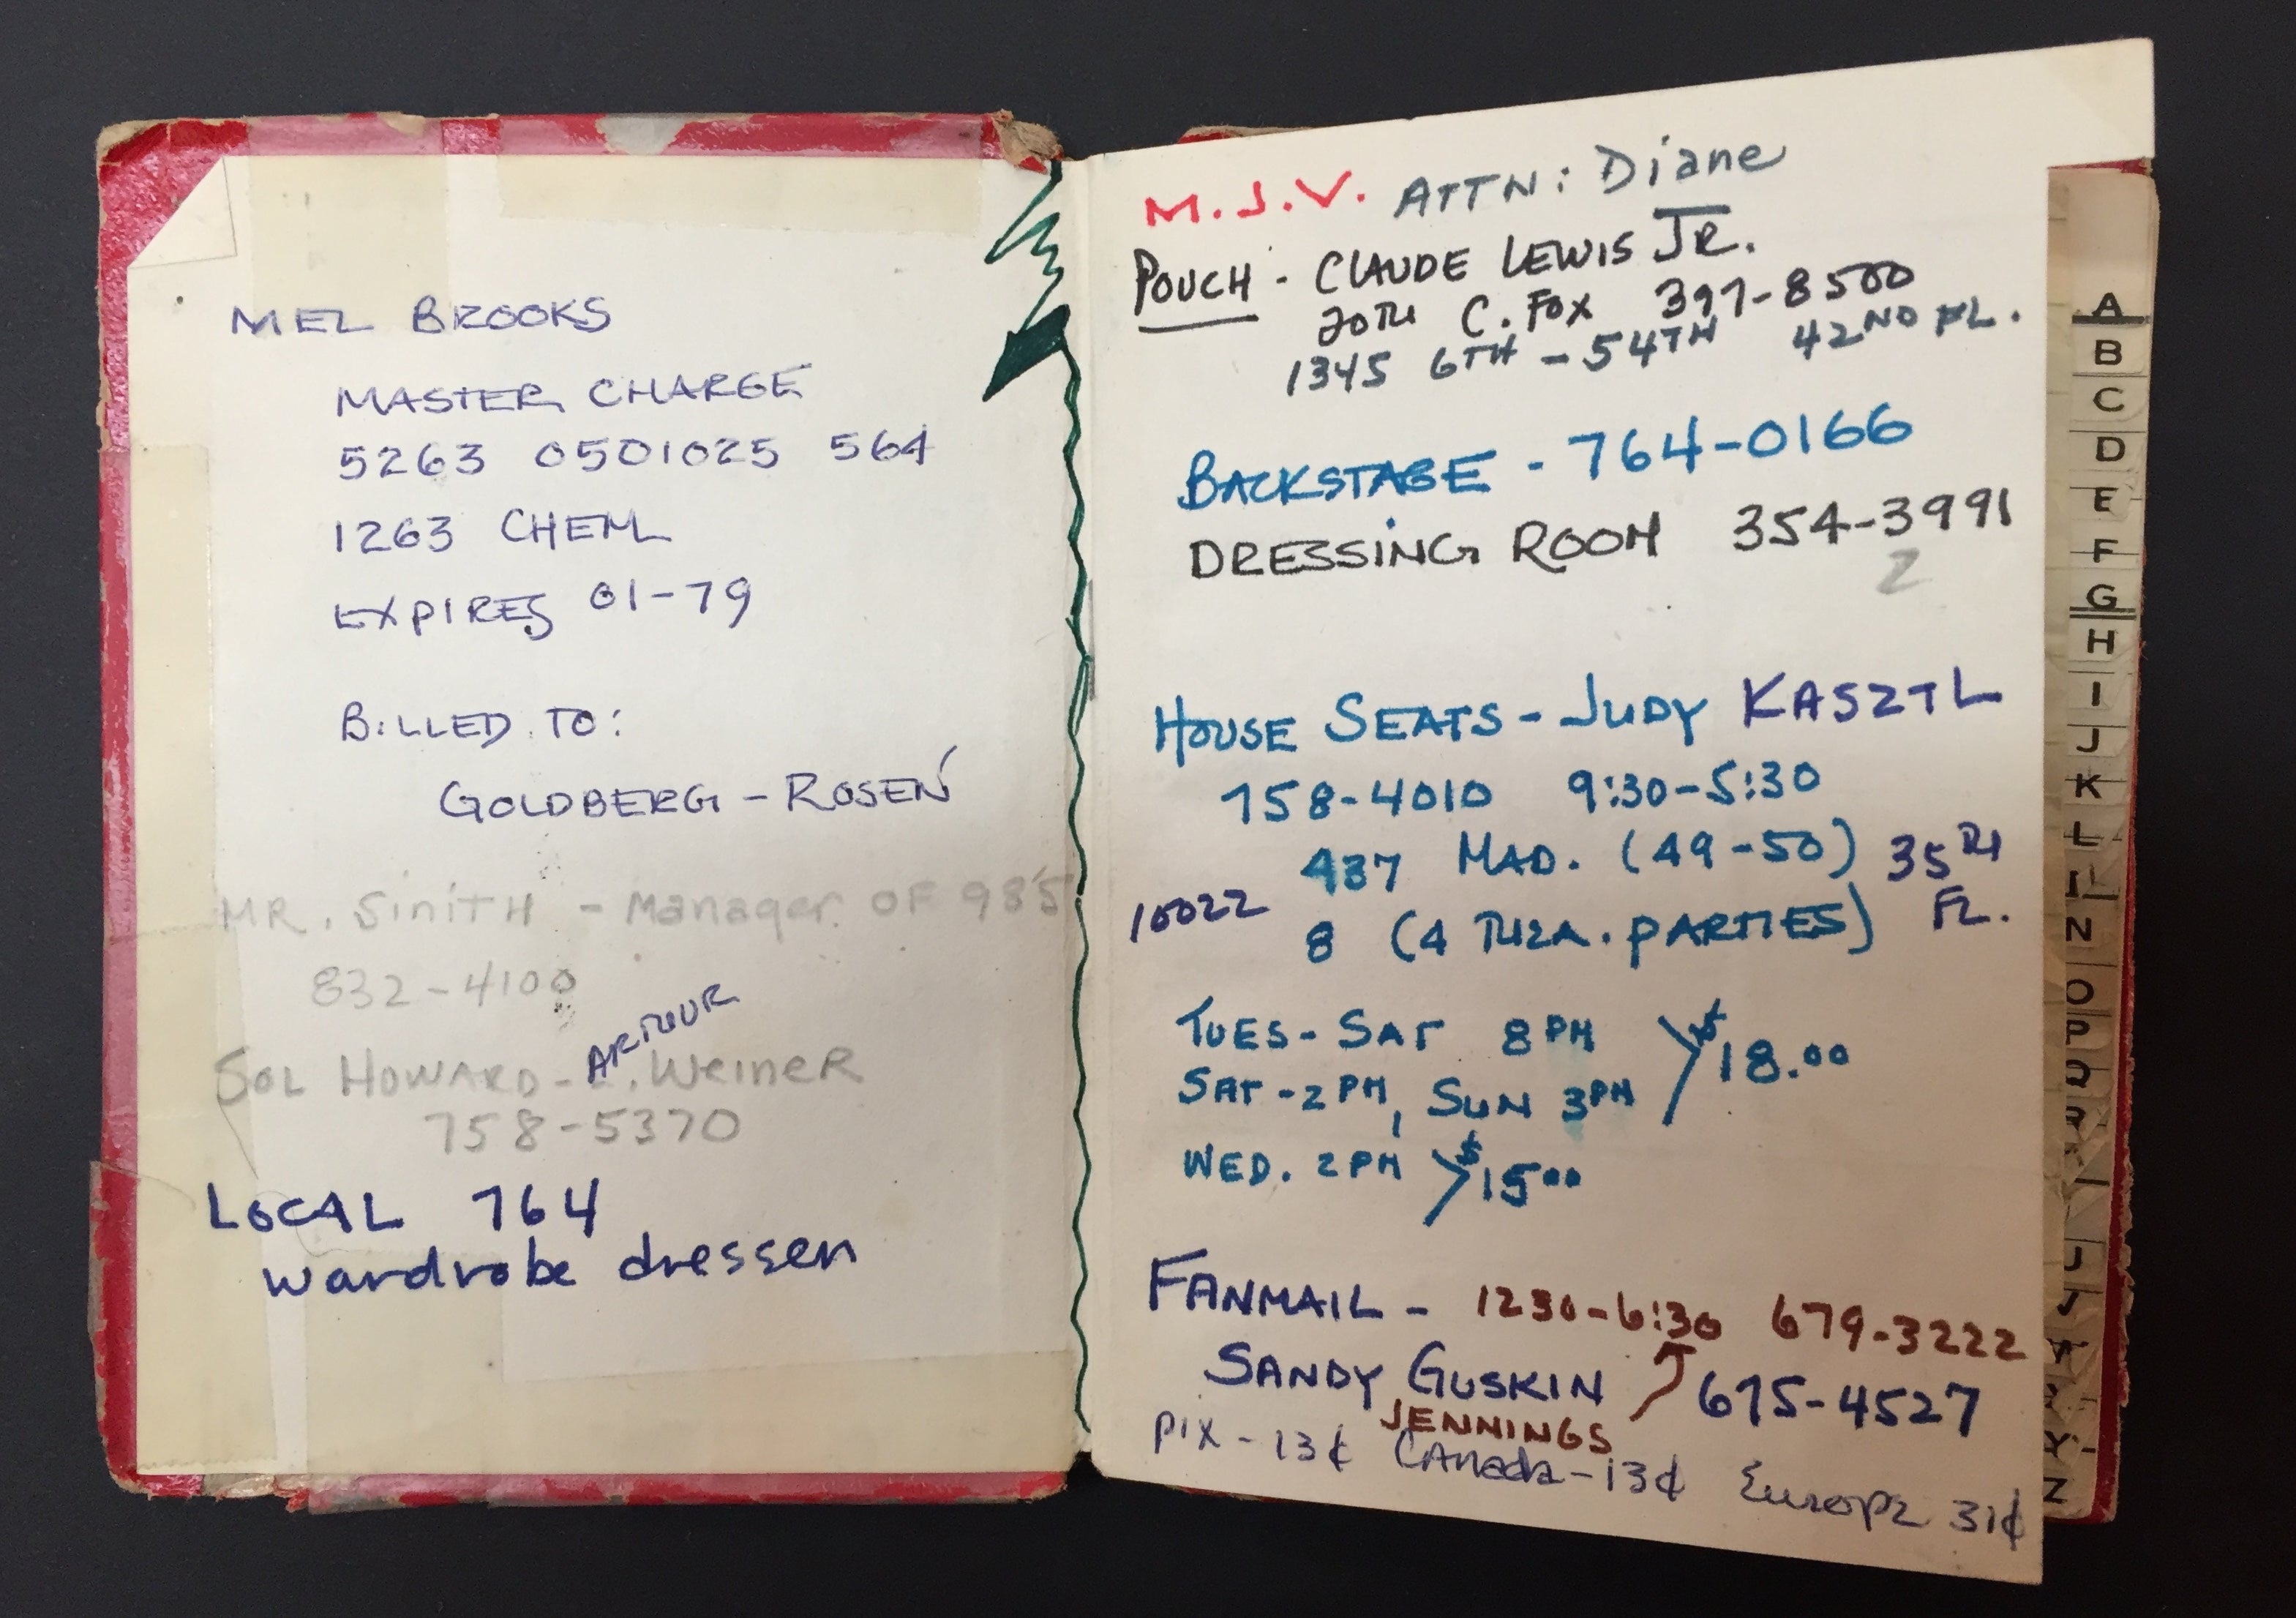 MEL BROOKS
MASTER CHARGE
5263 0501025 564
1263 CHEM
EXPIRES 01-79
BILLED TO:
GOLDBERG - ROSEN
MR. SINITH - Manager OF 985
832-4100
ARTHUR
SOL HOWARD - . WeineR
758-5370
LOCAL 764
wardrobe dresser
M.J.V. ATTN: Diane
POUCH - CLAUDE LEWIS JR.
20TH C. FOX 397-8500
1345 6TH - 54TH 42ND FL.
BACKSTAGE - 764-0166
DRESSING ROOM 354-3991
2
HOUSE SEATS - JUDY KASZTL
758-4010 9:30-5:30
437 MAD. (49-50) 35TH FL.
10022 8 (4 THEA. PARTIES)
TUES - SAT 8 PM
SAT - 2 PM, SUN 3PM > $18.00
WED. 2 PM > $15.00
FANMAIL - 1230-6:30 679-3222
SANDY GUSKIN 675-4527
JENNINGS
PIX - 13¢ CANada - 13¢ Europe 31¢
A
B
C
D
E
F
G
H
I
J
K
L
N
O
P
Q
R
Z